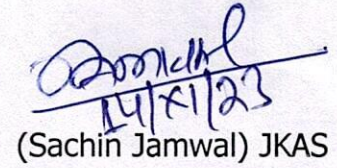 14/XI/23
(Sachin Jamwal) JKAS